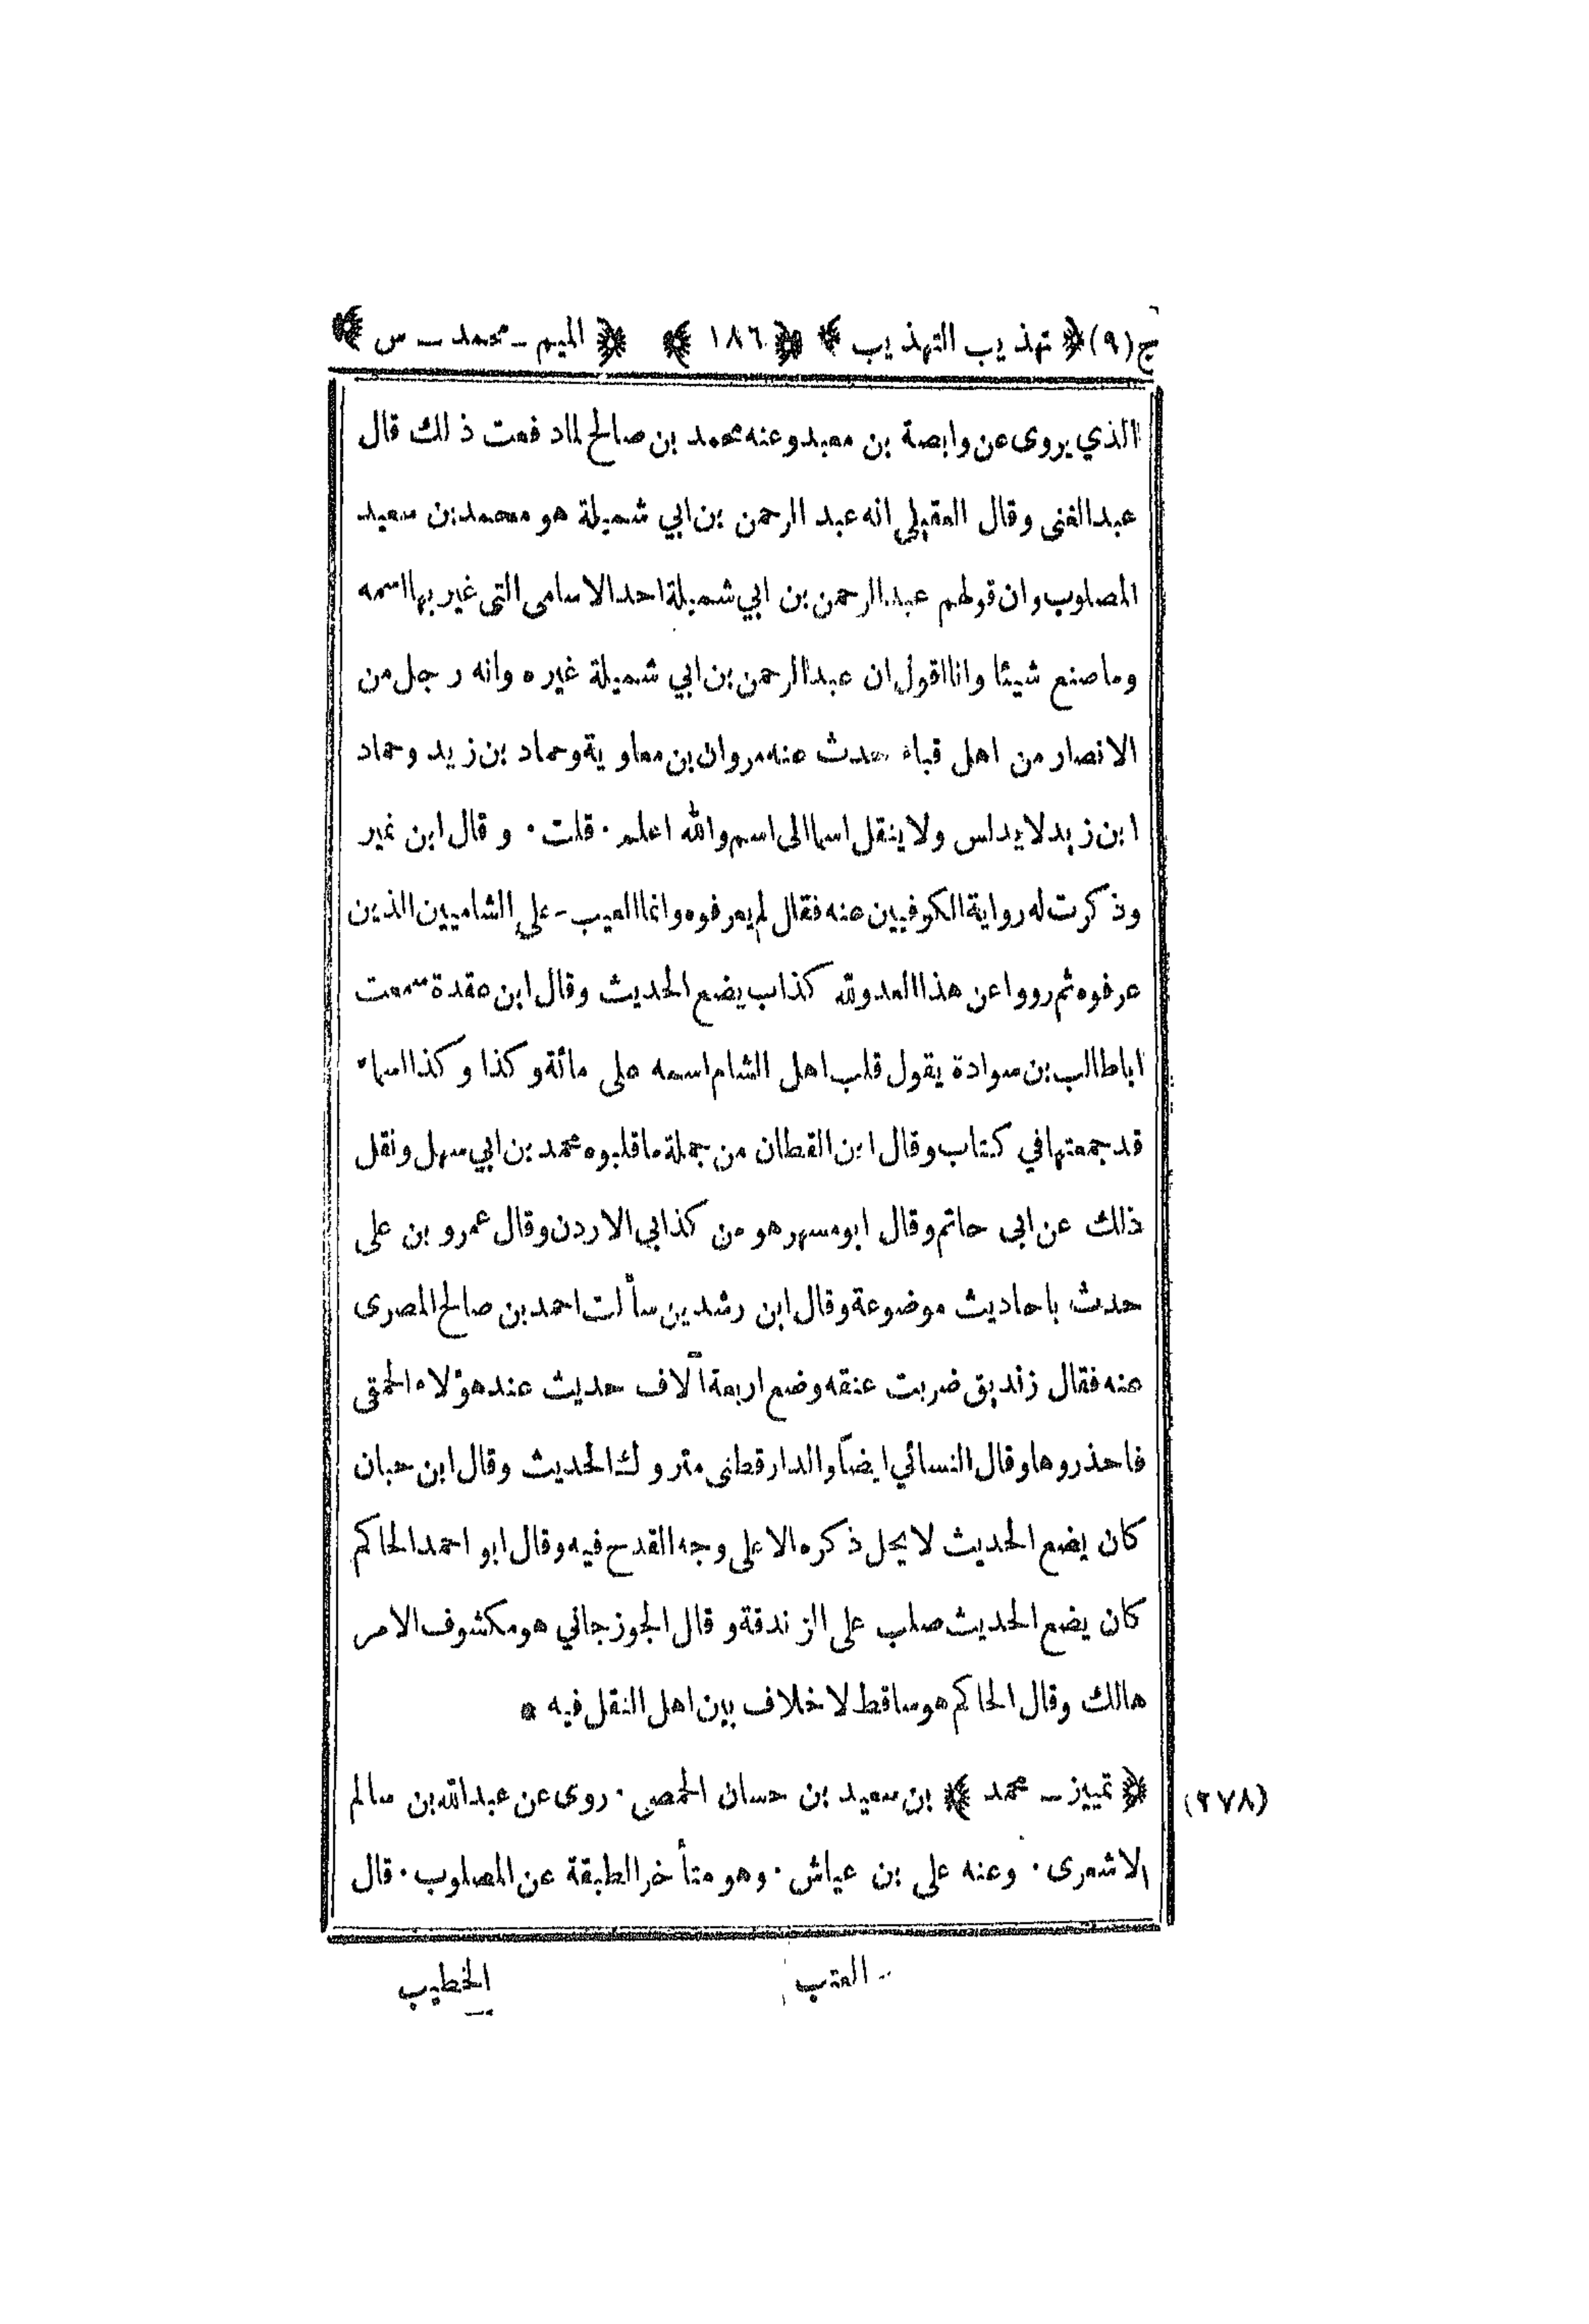 ج(٩) ﴿ تهذيب التهذيب ﴾ ﴿ ١٨٦ ﴾ ﴿ الميم - محمد - س ﴾
الذي يروى عن وابصة بن معبد وعنه محمد بن صالح لما دفعت ذلك قال
عبد الغنى وقال العقيلي انه عبد الرحمن بن ابي شميلة هو محمد بن سعيد
المصلوب وان قولهم عبد الرحمن بن ابي شميلة احد الاسامى التى غير بها اسمه
وما صنع شيئا وانا اقول ان عبد الرحمن بن ابي شميلة غيره وانه رجل من
الانصار من اهل قباء حدث عنه مروان بن معاوية وحماد بن زيد وحماد
ابن زيد لا يدلس ولا ينقل اسما الى اسم والله اعلم · قلت · وقال ابن نمير
وذكرت له رواية الكوفيين عنه فقال لم يعرفوه وانما العيب - على الشاميين الذين
عرفوه ثم رووا عن هذا العدو لله كذاب يضع الحديث وقال ابن عقدة سمعت
ابا طالب بن سوادة يقول قلب اهل الشام اسمه على مائة وكذا وكذا اسماء
قد جمعتها في كتاب وقال ابن القطان من جملة ما قلبوه محمد بن ابي سهل ونقل
ذلك عن ابى حاتم وقال ابو مسهر هو من كذابي الاردن وقال عمرو بن على
حدث باحاديث موضوعة وقال ابن رشدين سألت احمد بن صالح المصرى
عنه فقال زنديق ضربت عنقه وضع اربعة آلاف حديث عند هؤلاء الحمقى
فاحذروها وقال النسائي ايضاً والدارقطنى متروك الحديث وقال ابن حبان
كان يضع الحديث لا يحل ذكره الا على وجه القدح فيه وقال ابو احمد الحاكم
كان يضع الحديث صلب على الزندقة وقال الجوزجاني هو مكشوف الامر
هالك وقال الحاكم هو ساقط لا خلاف بين اهل النقل فيه *
(٢٧٨) ﴿ تمييز - محمد ﴾ بن سعيد بن حسان الحمصى · روى عن عبد الله بن سالم
الاشعرى · وعنه على بن عياش · وهو متأخر الطبقة عن المصلوب · قال
الخطيب